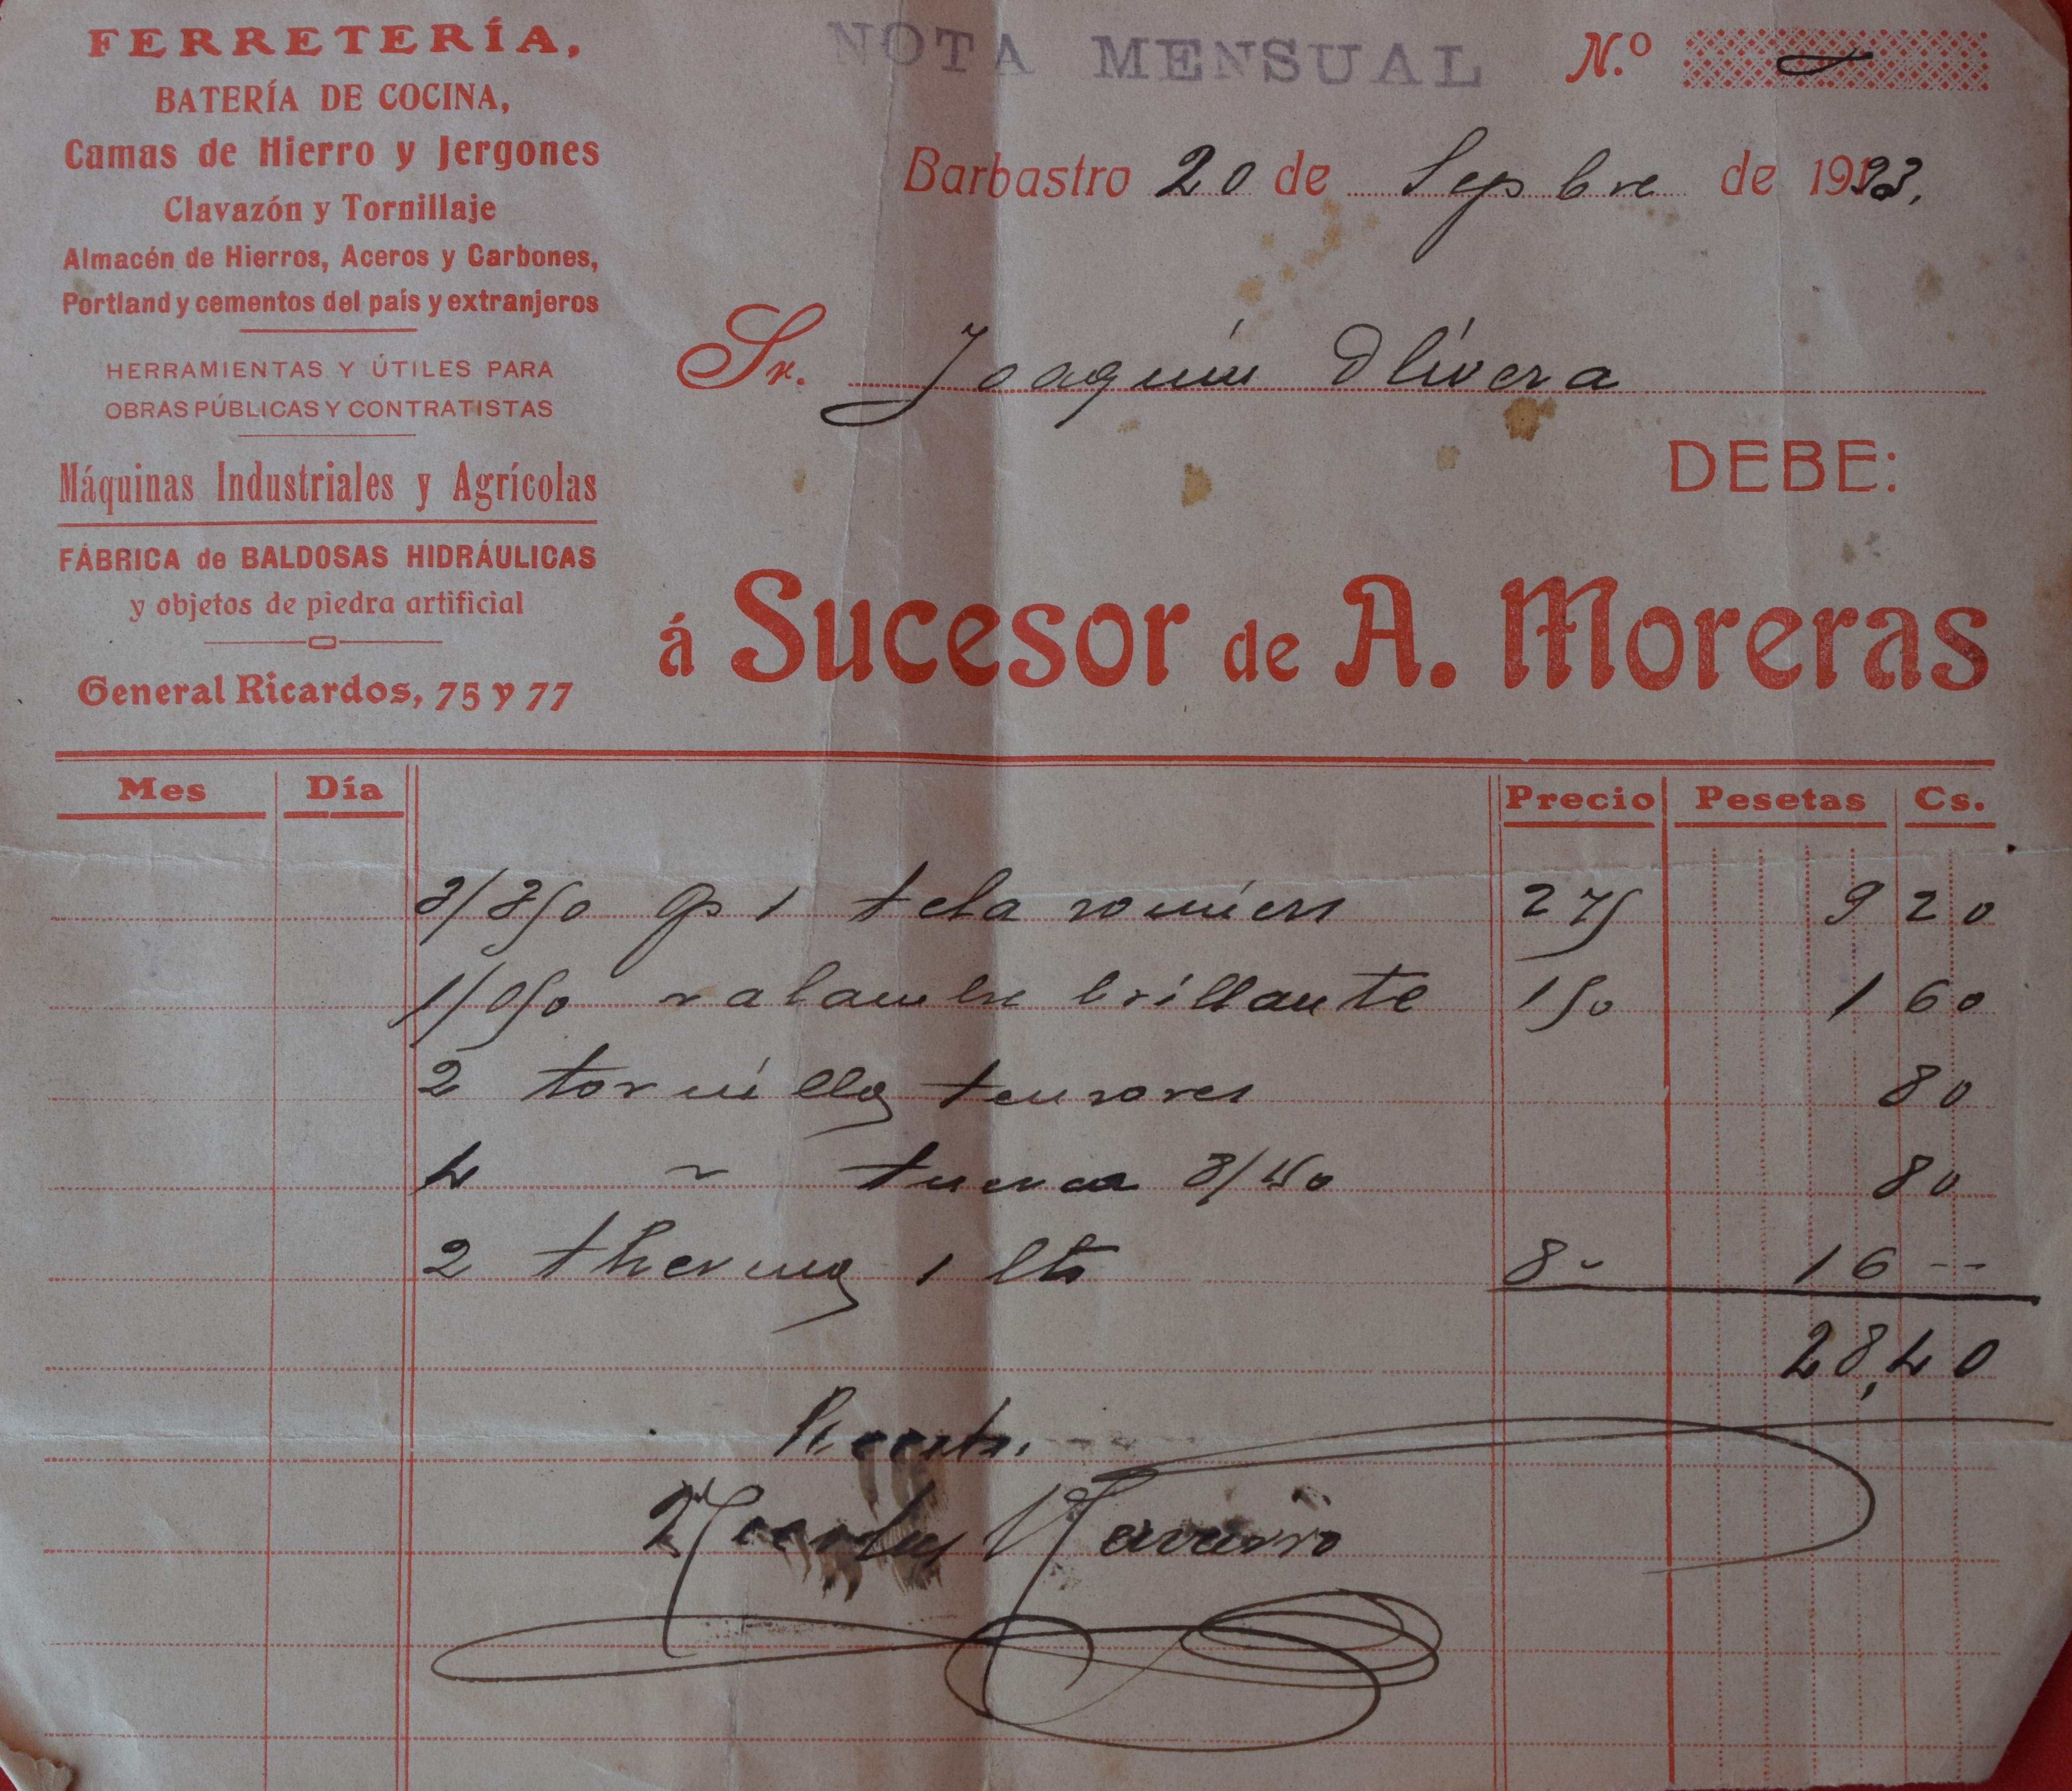 FERRETERÍA,
BATERÍA DE COCINA,
Camas de Hierro y Jergones
Clavazón y Tornillaje
Almacén de Hierros, Aceros y Carbones,
Portland y cementos del país y extranjeros
HERRAMIENTAS Y ÚTILES PARA
OBRAS PÚBLICAS Y CONTRATISTAS
Máquinas Industriales y Agrícolas
FÁBRICA de BALDOSAS HIDRÁULICAS
y objetos de piedra artificial
General Ricardos, 75 y 77
NOTA MENSUAL N.º
Barbastro 20 de Sepbre de 1923.
Sr. Joaquín Olivera
DEBE:
á Sucesor de A. Moreras
Mes Día Precio Pesetas Cs.
3/350 1 tela 275 9 20
1/050 alambre brillante 150 1 60
2 tornillos tensores 80
4 " tuerca 8/40 80
2 thermos 1 lto 8 16 --
28,40
Recibí.
Navarro